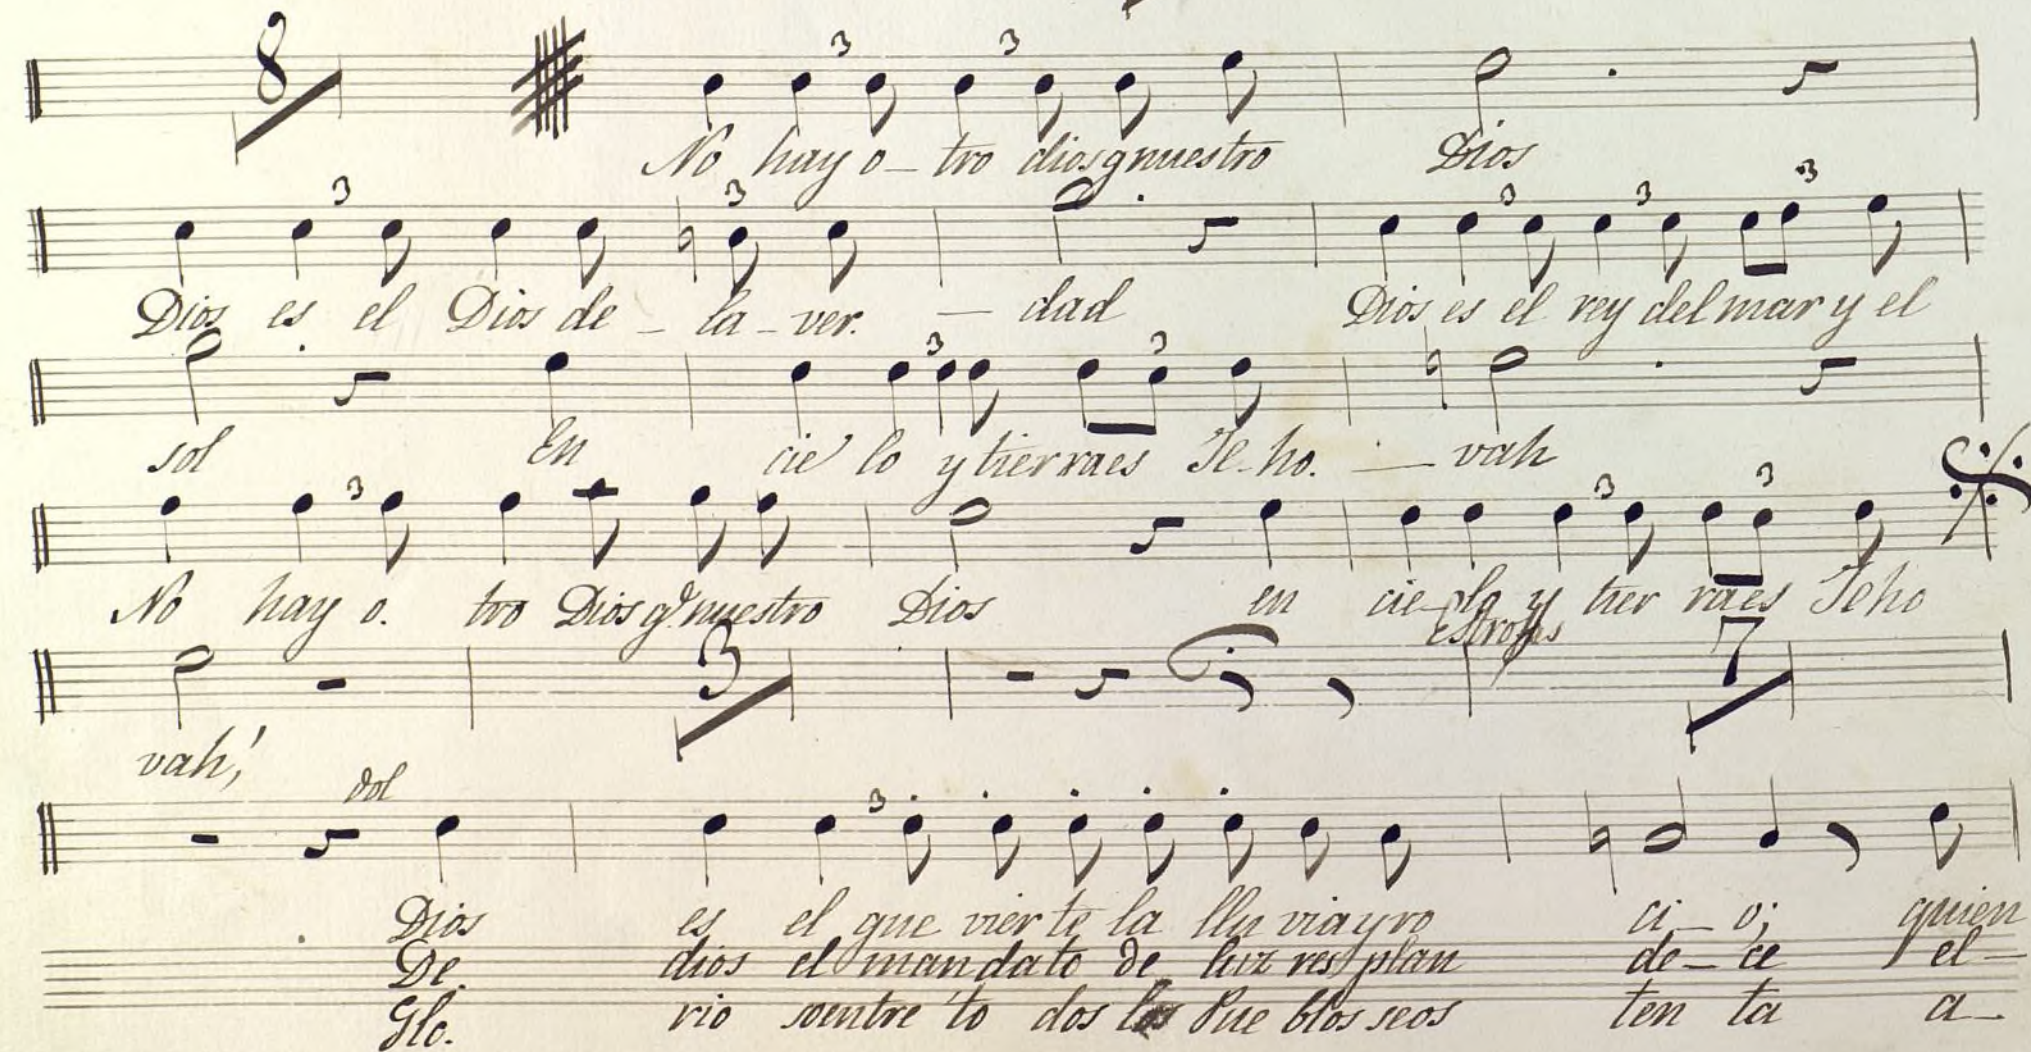 8 3 3
No hay o_ tro dios q nuestro Dios
3 3 3 3 3
Dios es el Dios de_ la_ ver. _ dad Dios es el rey del mar y el
3 3
sol En cie lo y tierra es Je_ho. _ vah
3 3 3
No hay o. tro Dios q.e nuestro Dios en cie_lo y tier ra es Jeho
3 Estrofas 7
vah!
dol 3
Dios es el que vier te la llu via y ro ci_ o; quien
De dios el mandato de luz resplan de_ ce el_
Glo. rio so entre to dos los Pue blos se os ten ta a_